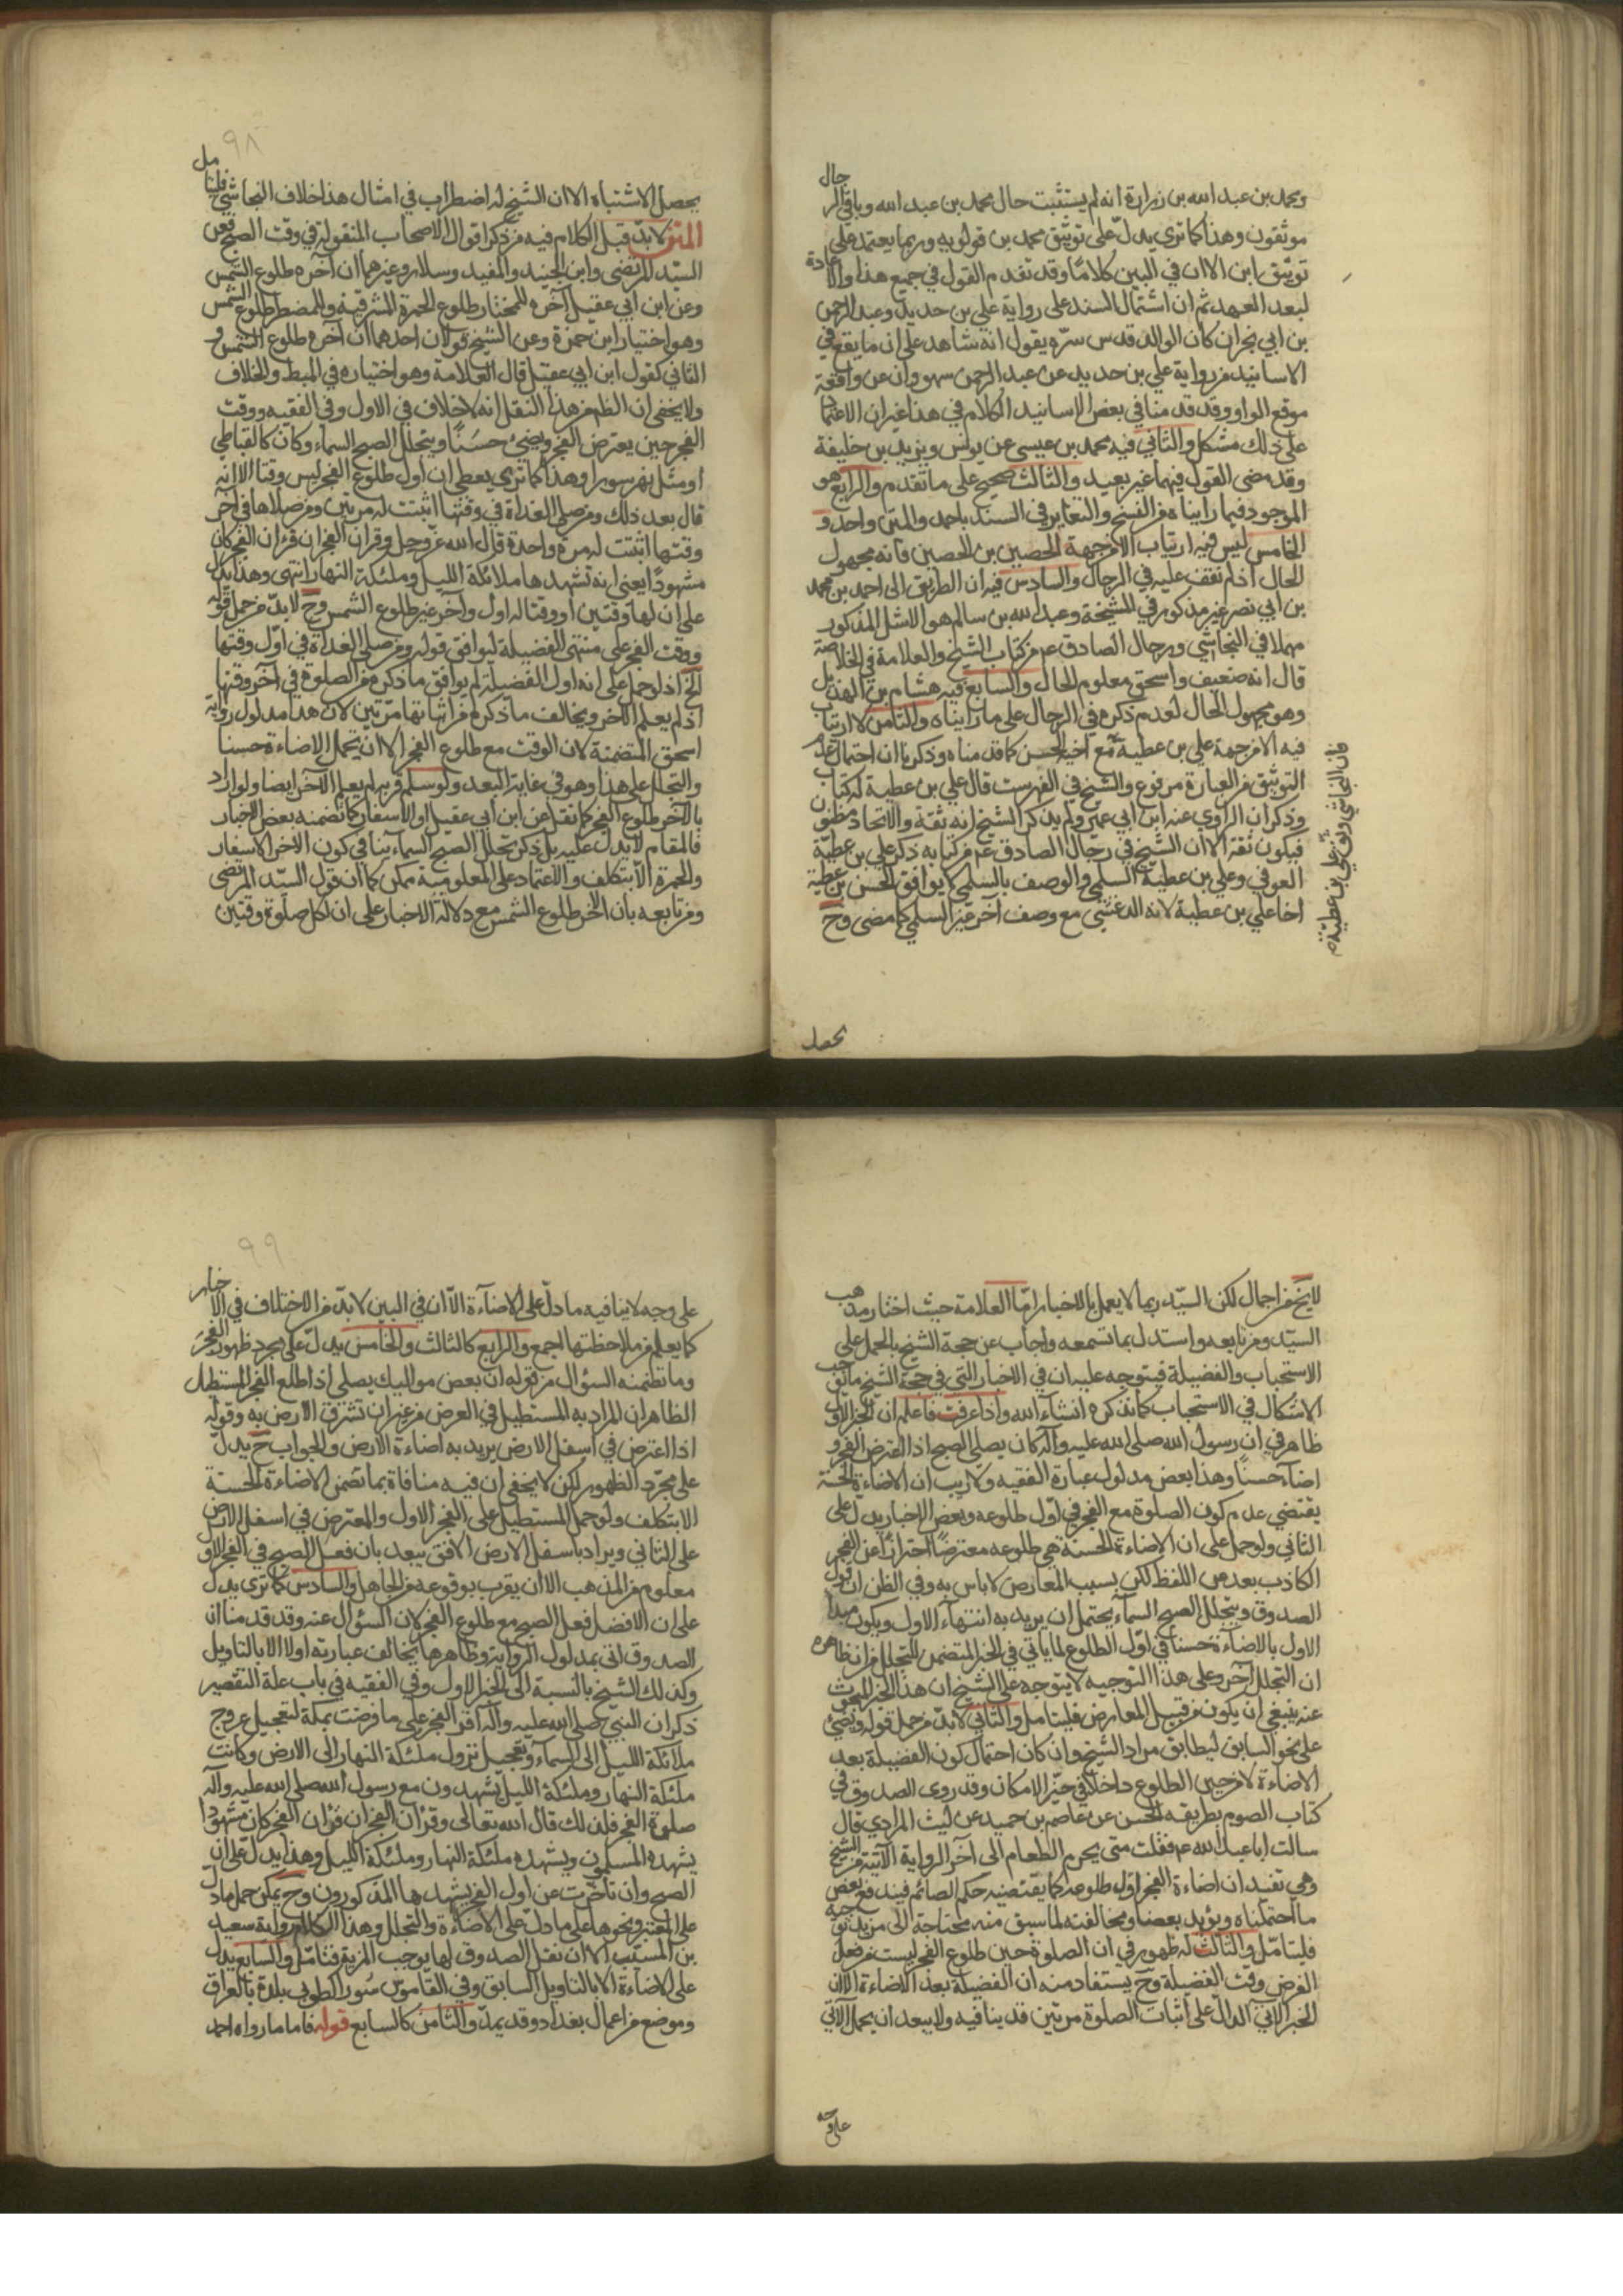 ومحمد بن عبد الله بن زرارة انه لم يستثبت حال محمد بن عبد الله وباقي الرجال
موثقون وهذا كما ترى يدل على توثيق محمد بن قولويه وربما يعتمد على
توثيق ابن الا ان في البين كلاما وقد تقدم القول في جميع هذا والاعادة
لبعد العهد ثم ان اشتمال السند على رواية علي بن حديد وعبد الرحمن
بن ابي نجران كان الوالد قدس سره يقول انه شاهد على ان ما يقع في
الاسانيد من رواية علي بن حديد عن عبد الرحمن سهو وان عن واقعة
موقع الواو وقد قدمنا في بعض الاسانيد الكلام في هذا غير ان الاعتماد
على ذلك مشكل والثاني فيه محمد بن عيسى عن يونس ويزيد بن خليفة
وقد مضى القول فيهما غير بعيد والثالث صحيح على ما تقدم والرابع هو
الموجود فيما رايناه من النسخ والتغاير في السند باحمد والمتن واحد و
الخامس ليس فيه ارتياب الا من جهة الحصين بن الحصين فانه مجهول
الحال اذ لم نقف عليه في الرجال والسادس فيه ان الطريق الى احمد بن محمد
بن ابي نصر غير مذكور في المشيخة وعبد الله بن سالم هو الاشل المذكور
مهملا في النجاشي ورجال الصادق ع من كتاب الشيخ والعلامة في الخلاصة
قال انه ضعيف واسحق معلوم الحال والسابع فيه هشام بن الهذيل
وهو مجهول الحال لعدم ذكره في الرجال على ما رايناه والثامن لا ارتياب
فيه الا من جهة علي بن عطية مع اخيه الحسن كما قدمناه وذكرنا ان احتمال عدم
التوثيق من العبارة مرفوع والشيخ في الفهرست قال علي بن عطية له كتاب
وذكر ان الراوي عنه ابن ابي عمير ولم يذكر الشيخ انه ثقة والاتحاد مظنون
فيكون ثقة الا ان الشيخ في رجال الصادق ع من كتابه ذكر علي بن عطية
العوفي وعلي بن عطية السلمي والوصف بالسلمي يوافق الحسن بن عطية
اخا علي بن عطية لانه الدغشي مع وصف آخر غير السلمي كما مضى وح
فان النجاشي وثق علي بن عطية
يحصل
٩٨
يحصل الاشتباه الا ان الشيخ له اضطراب في امثال هذا خلاف النجاشي
المتن لا بد قبل الكلام فيه من ذكر اقوال الاصحاب المنقولة في وقت الصبح فعن
السيد المرتضى وابن الجنيد والمفيد وسلار وغيرهم ان آخره طلوع الشمس
وعن ابن ابي عقيل آخره للمختار طلوع الحمرة المشرقية وللمضطر طلوع الشمس
وهو اختيار ابن حمزة وعن الشيخ قولان احدهما ان آخره طلوع الشمس و
الثاني كقول ابن ابي عقيل قال العلامة وهو اختياره في المبسط والخلاف
ولا يخفى ان الظم من هذا النقل انه لا خلاف في الاول وفي الفقيه ووقت
الفجر حين يعترض الفجر ويضيء حسنا ويتجلل الصبح السماء وكان كالقباطي
او مثل نهر سورا وهذا كما ترى يعطي ان اول طلوع الفجر ليس وقتا الا انه
قال بعد ذلك ومن صلى الغداة في وقتها اثبتت له مرتين ومن صلاها في آخر
وقتها اثبتت له مرة واحدة قال الله عز وجل وقران الفجر ان قران الفجر كان
مشهودا يعني انه تشهدها ملائكة الليل وملئكة النهار انتهى وهذا يدل
على ان لها وقتين او وقتا له اول وآخر غير طلوع الشمس وح لا بد من حمل قوله
ووقت الفجر على منتهى الفضيلة ليوافق قوله ومن صلى الغداة في اول وقتها
الخ اذ لو حمل على انه اول الفضيلة لم يوافق ما ذكره من الصلوة في آخر وقتها
اذ لم يعلم الآخر ويخالف ما ذكره من اثباتها مرتين لان هذا مدلول رواية
اسحق المتضمنة لان الوقت مع طلوع الفجر الا ان تحمل الاضاءة حسنا
والتجلل على هذا وهو في غاية البعد ولو سلم قربه لم يعلم الآخر ايضا ولو اراد
بالآخر طلوع الفجر كما نقل عن ابن ابي عقيل او الاسفار كما تضمنه بعض الاخبار
فالمقام لا يدل عليه بل ذكر تجلل الصبح السماء ينافي كون الاخر الاسفار
والحمرة الا بتكلف والاعتماد على المعلومية ممكن كما ان قول السيد المرتضى
ومن تابعه بان الآخر طلوع الشمس مع دلالة الاخبار على ان لكل صلوة وقتين
لا يخ من اجمال لكن السيد ربما لا يعمل بالاخبار اما العلامة حيث اختار مذهب
السيد ومن تابعه واستدل بما تسمعه واجاب عن حجة الشيخ بالحمل على
الاستحباب والفضيلة فيتوجه عليه ان في الاخبار التي في حجة الشيخ ما يوجب
الاشكال في الاستحباب كما نذكره انشاء الله واذا عرفت فاعلم ان الخبر الاول
ظاهر في ان رسول الله صلى الله عليه وآله كان يصلي الصبح اذا اعترض الفجر و
اضاء حسنا وهذا بعض مدلول عبارة الفقيه ولا ريب ان الاضاءة الحسنة
يقتضي عدم كون الصلوة مع الفجر في اول طلوعه وبعض الاخبار يدل على
الثاني ولو حمل على ان الاضاءة الحسنة هي طلوعه معترضا احترازا عن الفجر
الكاذب بعد من اللفظ لكن بسبب المعارض لا باس به وفي الظن ان قول
الصدوق ويتجلل الصبح السماء يحتمل ان يريد به انتهاء الاول ويكون مبدأ
الاول بالاضاءة حسنا في اول الطلوع لما ياتي في الخبر المتضمن للتجلل من ان ظاهره
ان التجلل آخر وعلى هذا التوجيه لا يتوجه على الشيخ ان هذا الخبر المبحوث
عنه ينبغي ان يكون من قبيل المعارض فليتامل والثاني لا بد من حمل قوله ويضيء
على نحو السابق ليطابق مراد الشيخ وان كان احتمال كون الفضيلة بعد
الاضاءة لا من حين الطلوع داخلا في حيز الامكان وقد روى الصدوق في
كتاب الصوم بطريقه الحسن عن عاصم بن حميد عن ليث المرادي قال
سالت ابا عبد الله ع فقلت متى يحرم الطعام الى آخر الرواية الآتية من الشيخ
وهي تفيد ان اضاءة الفجر اول طلوعه كما يقتضيه حكم الصائم فيندفع بعض
ما احتملناه ويؤيد بعضا ومخالفته لما سبق منه محتاجة الى مزيد توجه
فليتامل والثالث له ظهور في ان الصلوة حين طلوع الفجر ليست من فعل
الفرض وقت الفضيلة وح يستفاد منه ان الفضيلة بعد الاضاءة الا ان
الخبر الاتي الدال على اثبات الصلوة مرتين قد ينافيه ولا يبعد ان يحمل الآتي
على وجه
٩٩
على وجه لا ينافيه ما دل على الاضاءة الا ان في البين لا بد من الاختلاف في الاخبار
كما يعلم من ملاحظتها اجمع والرابع كالثالث والخامس يدل على مجرد ظهور الفجر
وما تضمنه السؤال من قوله ان بعض مواليك يصلي اذا طلع الفجر المستطيل
الظاهر ان المراد به المستطيل في العرض من غير ان تشرق الارض به وقوله
اذا اعترض في اسفل الارض يريد به اضاءة الارض والجواب ح يدل
على مجرد الظهور لكن لا يخفى ان فيه منافاة بما تضمن الاضاءة الحسنة
الا بتكلف ولو حمل المستطيل على الفجر الاول والمعترض في اسفل الارض
على الثاني ويراد باسفل الارض الافق يبعد بان فعل الصبح في الفجر الاول
معلوم من المذهب الا ان يقرب بوقوعه من الجاهل والسادس كما ترى يدل
على ان الافضل فعل الصبح مع طلوع الفجر لان السؤال عنه وقد قدمنا ان
الصدوق اتى بمدلول الرواية وظاهرها يخالف عبارته اولا الا بالتاويل
وكذلك الشيخ بالنسبة الى الخبر الاول وفي الفقيه في باب علة التقصير
ذكر ان النبي صلى الله عليه وآله اقر الفجر على ما فرضت بمكة لتعجيل عروج
ملائكة الليل الى السماء وتعجيل نزول ملئكة النهار الى الارض وكانت
ملئكة النهار وملئكة الليل يشهدون مع رسول الله صلى الله عليه وآله
صلوة الفجر فلذلك قال الله تعالى وقران الفجر ان قران الفجر كان مشهودا
يشهده المسلمون ويشهده ملئكة النهار وملئكة الليل وهذا يدل على ان
الصبح وان تاخرت عن اول الفجر يشهدها المذكورون وح يمكن حمل ما دل
على المعتبر ونحوها على ما دل على الاضاءة والتجلل وهذا الكلام رواية سعيد
بن المسيب الا ان نقل الصدوق لها يوجب المزية فتامل والسابع يدل
على الاضاءة الا بالتاويل السابق وفي القاموس سورا كطوبى بلدة بالعراق
وموضع من اعمال بغداد وقد يمد والثامن كالسابع قوله فاما ما رواه احمد